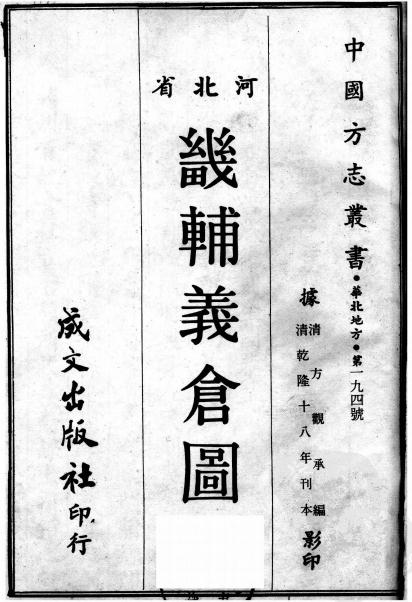 中國方志叢書•華北地方•第一九四號
據
清方觀承編
清乾隆十八年刊本
影印
河北省
畿輔義倉圖
成文出版社印行